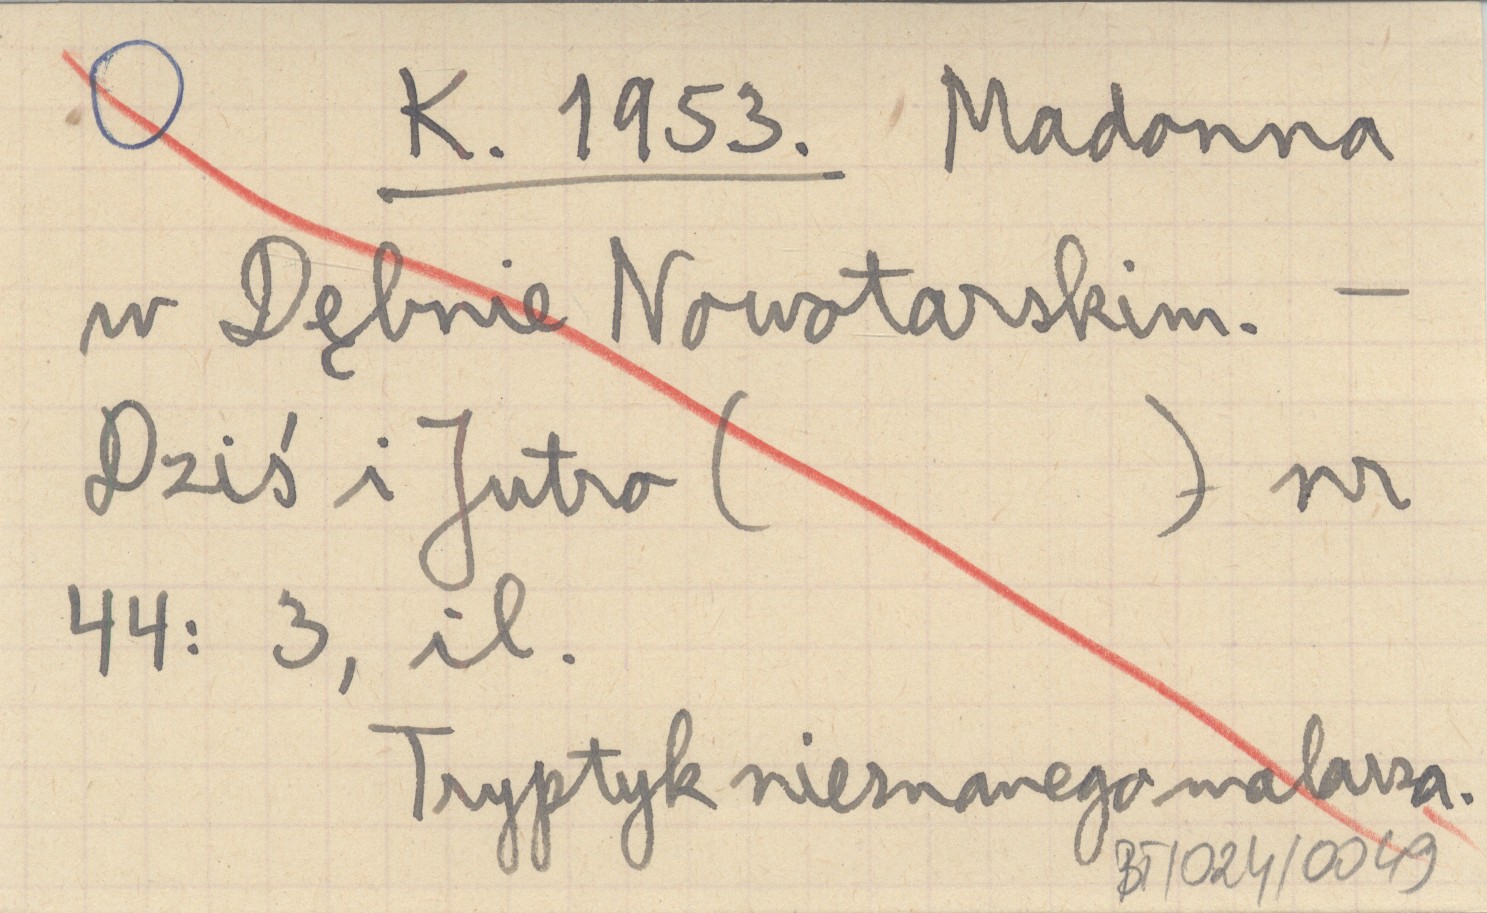 K. 1953. Madonna
w Dębnie Nowotarskim. –
Dziś i Jutro (                ) nr
44: 3, il.
Tryptyk nieznanego malarza.
BT/024/0049